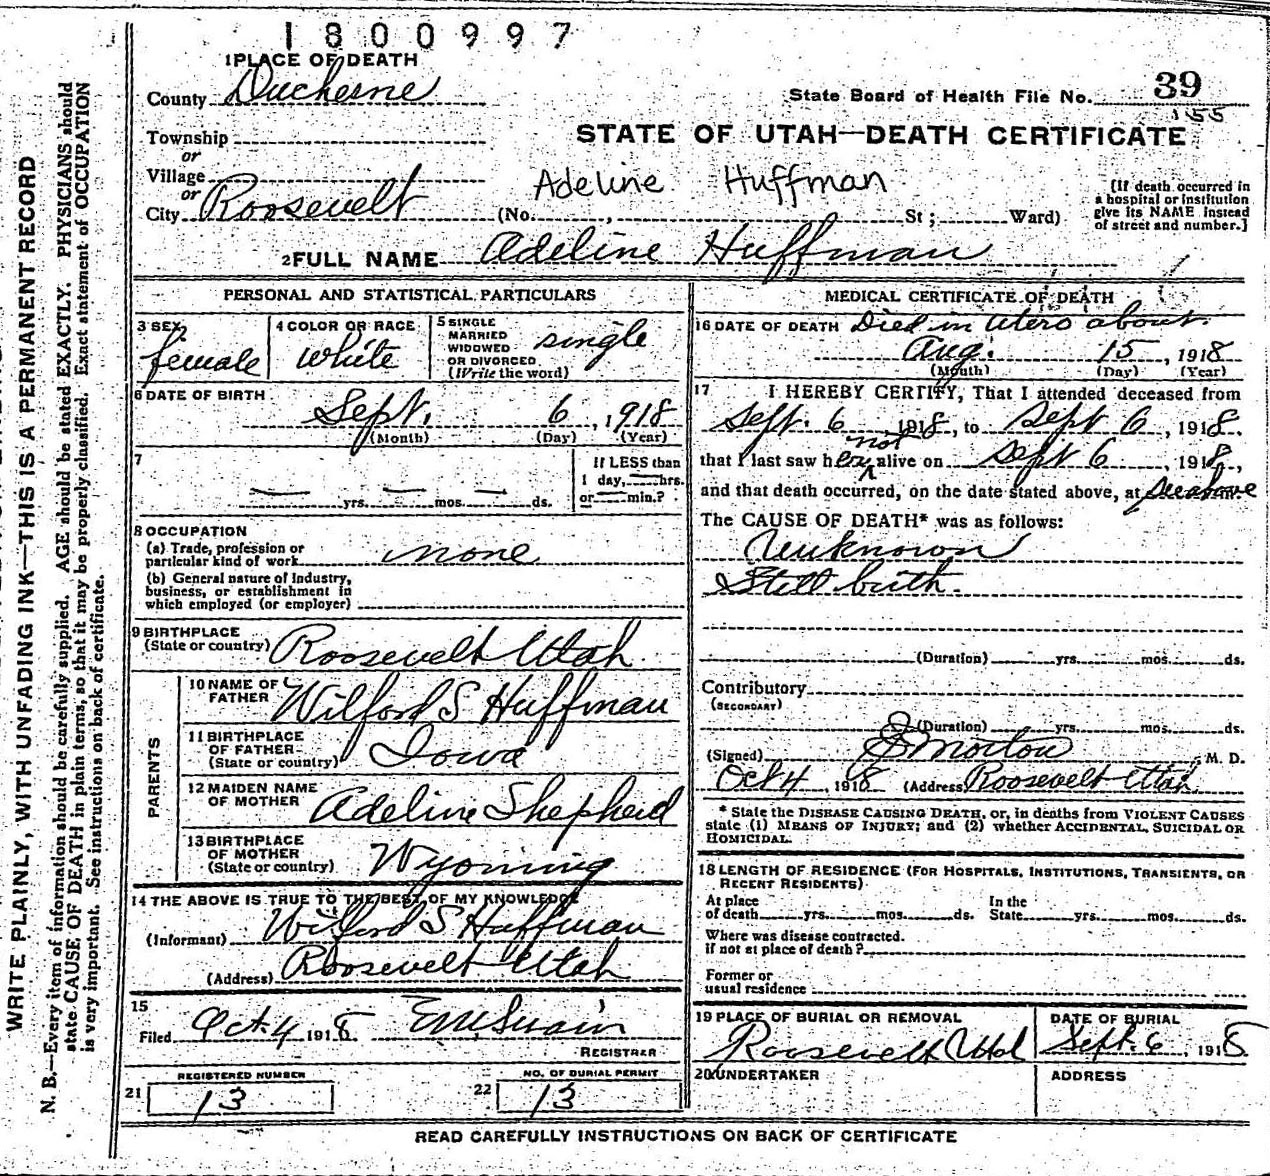 1800997
1 PLACE OF DEATH
County Duchesne
State Board of Health File No. 39
155
Township
or
Village
or
City Roosevelt
STATE OF UTAH—DEATH CERTIFICATE
Adeline Huffman
(No. , St ; Ward)
[If death occurred in
a hospital or institution
give its NAME instead
of street and number.]
2 FULL NAME Adeline Huffman
PERSONAL AND STATISTICAL PARTICULARS
3 SEX
female
4 COLOR OR RACE
White
5 SINGLE
MARRIED
WIDOWED
OR DIVORCED
(Write the word)
single
6 DATE OF BIRTH
Sept. 6, 1918
(Month) (Day) (Year)
7
yrs. mos. ds.
If LESS than
1 day, hrs.
or min.?
8 OCCUPATION
(a) Trade, profession or
particular kind of work none
(b) General nature of Industry,
business, or establishment in
which employed (or employer)
9 BIRTHPLACE
(State or country) Roosevelt Utah
PARENTS
10 NAME OF
FATHER Wilford S Huffman
11 BIRTHPLACE
OF FATHER
(State or country) Iowa
12 MAIDEN NAME
OF MOTHER Adeline Shepherd
13 BIRTHPLACE
OF MOTHER
(State or country) Wyoming
14 THE ABOVE IS TRUE TO THE BEST OF MY KNOWLEDGE
(Informant) Wilford S Huffman
(Address) Roosevelt Utah
15
Filed Oct. 4 1918 E M Swain
REGISTRER
REGISTERED NUMBER
21 13
NO. OF BURIAL PERMIT
22 13
MEDICAL CERTIFICATE OF DEATH
16 DATE OF DEATH Died in Utero about
Aug. 15, 1918
(Month) (Day) (Year)
17 I HEREBY CERTIFY, That I attended deceased from
Sept. 6 1918, to Sept 6, 1918,
not
that I last saw her alive on Sept 6, 1918,
and that death occurred, on the date stated above, at see above
The CAUSE OF DEATH* was as follows:
Unknown
Still birth.
(Duration) yrs. mos. ds.
Contributory
(SECONDARY)
(Duration) yrs. mos. ds.
(Signed) Morton, M. D.
Oct 4, 1918 (Address) Roosevelt Utah.
* State the DISEASE CAUSING DEATH, or, in deaths from VIOLENT CAUSES
state (1) MEANS OF INJURY; and (2) whether ACCIDENTAL, SUICIDAL OR
HOMICIDAL.
18 LENGTH OF RESIDENCE (FOR HOSPITALS, INSTITUTIONS, TRANSIENTS, OR
RECENT RESIDENTS)
At place In the
of death yrs. mos. ds. State yrs. mos. ds.
Where was disease contracted.
if not at place of death?
Former or
usual residence
19 PLACE OF BURIAL OR REMOVAL
Roosevelt Utah
DATE OF BURIAL
Sept. 6, 1918
20 UNDERTAKER
ADDRESS
READ CAREFULLY INSTRUCTIONS ON BACK OF CERTIFICATE
WRITE PLAINLY, WITH UNFADING INK—THIS IS A PERMANENT RECORD
N. B.—Every item of information should be carefully supplied. AGE should be stated EXACTLY. PHYSICIANS should
state CAUSE OF DEATH in plain terms, so that it may be properly classified. Exact statement of OCCUPATION
is very important. See instructions on back of certificate.